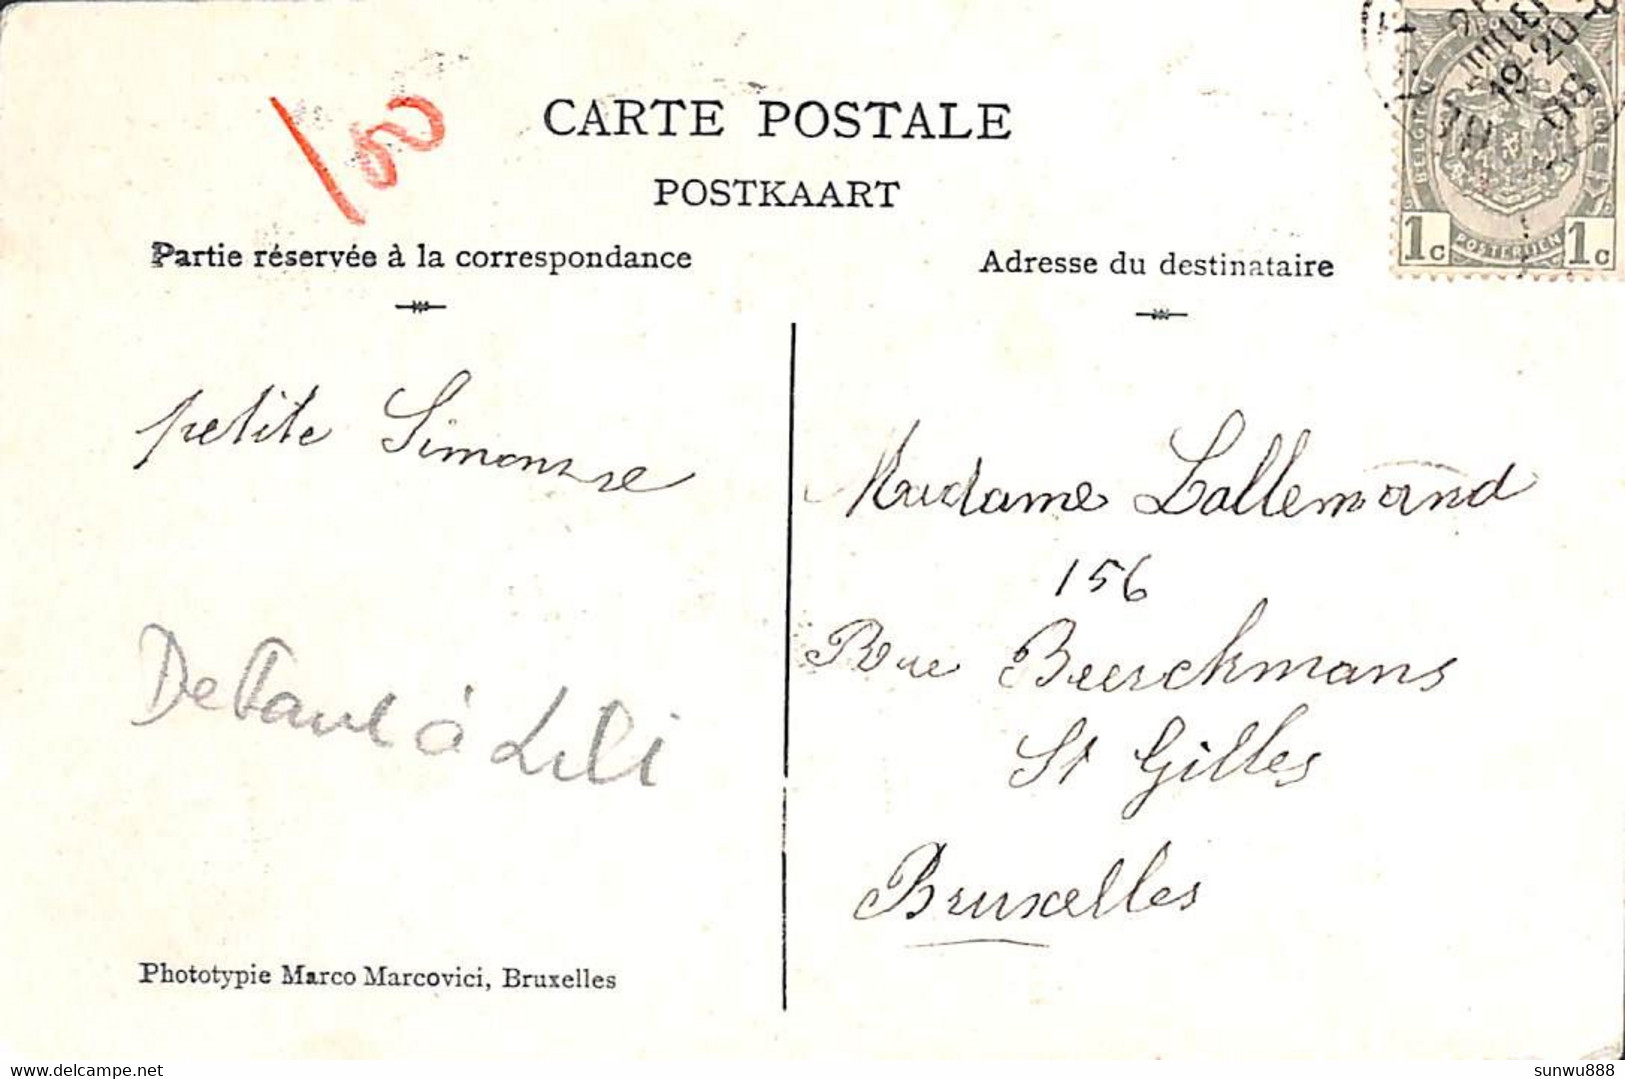 CARTE POSTALE
POSTKAART
Partie réservée à la correspondance
Adresse du destinataire
BELGIQUE
POSTERIJEN
1c 1c
petite Simonne
Madame Lallemand
156
Rue Berckmans
St Gilles
Bruxelles
à Lili
Phototypie Marco Marcovici, Bruxelles
www.delcampe.net
sunwu888